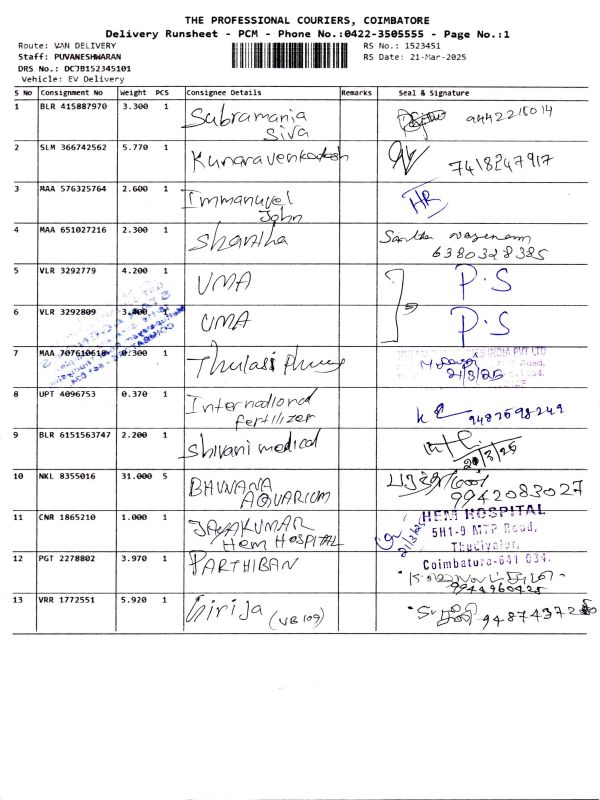 THE PROFESSIONAL COURIERS, COIMBATORE
Delivery Runsheet - PCM - Phone No.:0422-3505555 - Page No.:1
Route: VAN DELIVERY
RS No.: 1523451
Staff: PUVANESHWARAN
RS Date: 21-Mar-2025
DRS No.: DCJB152345101
Vehicle: EV Delivery
S No Consignment No Weight PCS Consignee Details Remarks Seal & Signature
1 BLR 415887970 3.300 1 Subramania
Siva
2 SLM 366742562 5.770 1 7418247917
3 MAA 576325764 2.600 1 Immanuvel HR
John
4 MAA 651027216 2.300 1 Shantha
6380328385
5 VLR 3292779 4.200 1 UMA P.S
6 VLR 3292809 3.400 1 UMA P.S
7 MAA 707610618 0.300 1 Thulasi INDIA PVT LTD
21/3/25
8 UPT 4096753 0.370 1 International
fertilizer
9 BLR 6151563747 2.200 1 Shivani medical
21/3/25
10 NKL 8355016 31.000 5 BHUVANA
AQUARIUM 9942083027
11 CNR 1865210 1.000 1 JAYAKUMAR HEM HOSPITAL
Hem HOSPITAL 5H1-9 MTP Road,
21/3/25 Thudiyalur,
Coimbatore-641 034.
12 PGT 2278802 3.970 1 PARTHIBAN
9944960425
13 VRR 1772551 5.920 1 Girija (VB 109)